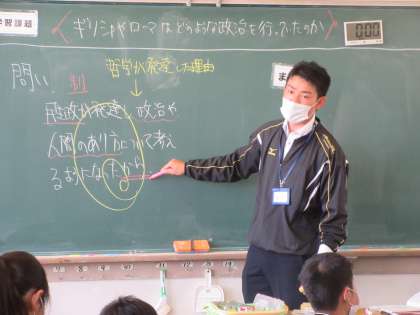 学習課題
ギリシャやローマはどのような政治を行っていたのか
000
問い
哲学が発達した理由
↓
政が発達し、政治や
人間のあり方について考え
るようになったから
ま